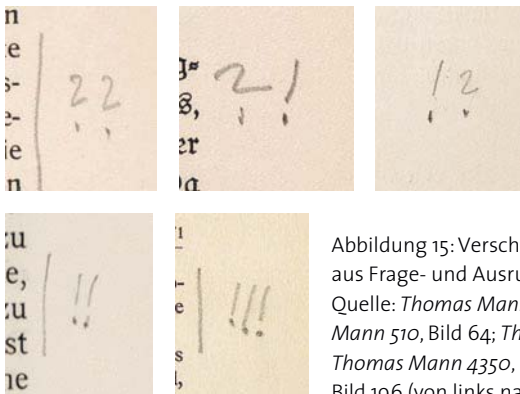 n
e
s-
e-
ie
n
??
g-
s,
er
?!
!?
zu
e,
zu
st
ne
!!
e
s
!!!
Abbildung 15: Versch
aus Frage- und Ausru
Quelle: Thomas Man
Mann 510, Bild 64; Th
Thomas Mann 4350,
Bild 196 (von links na